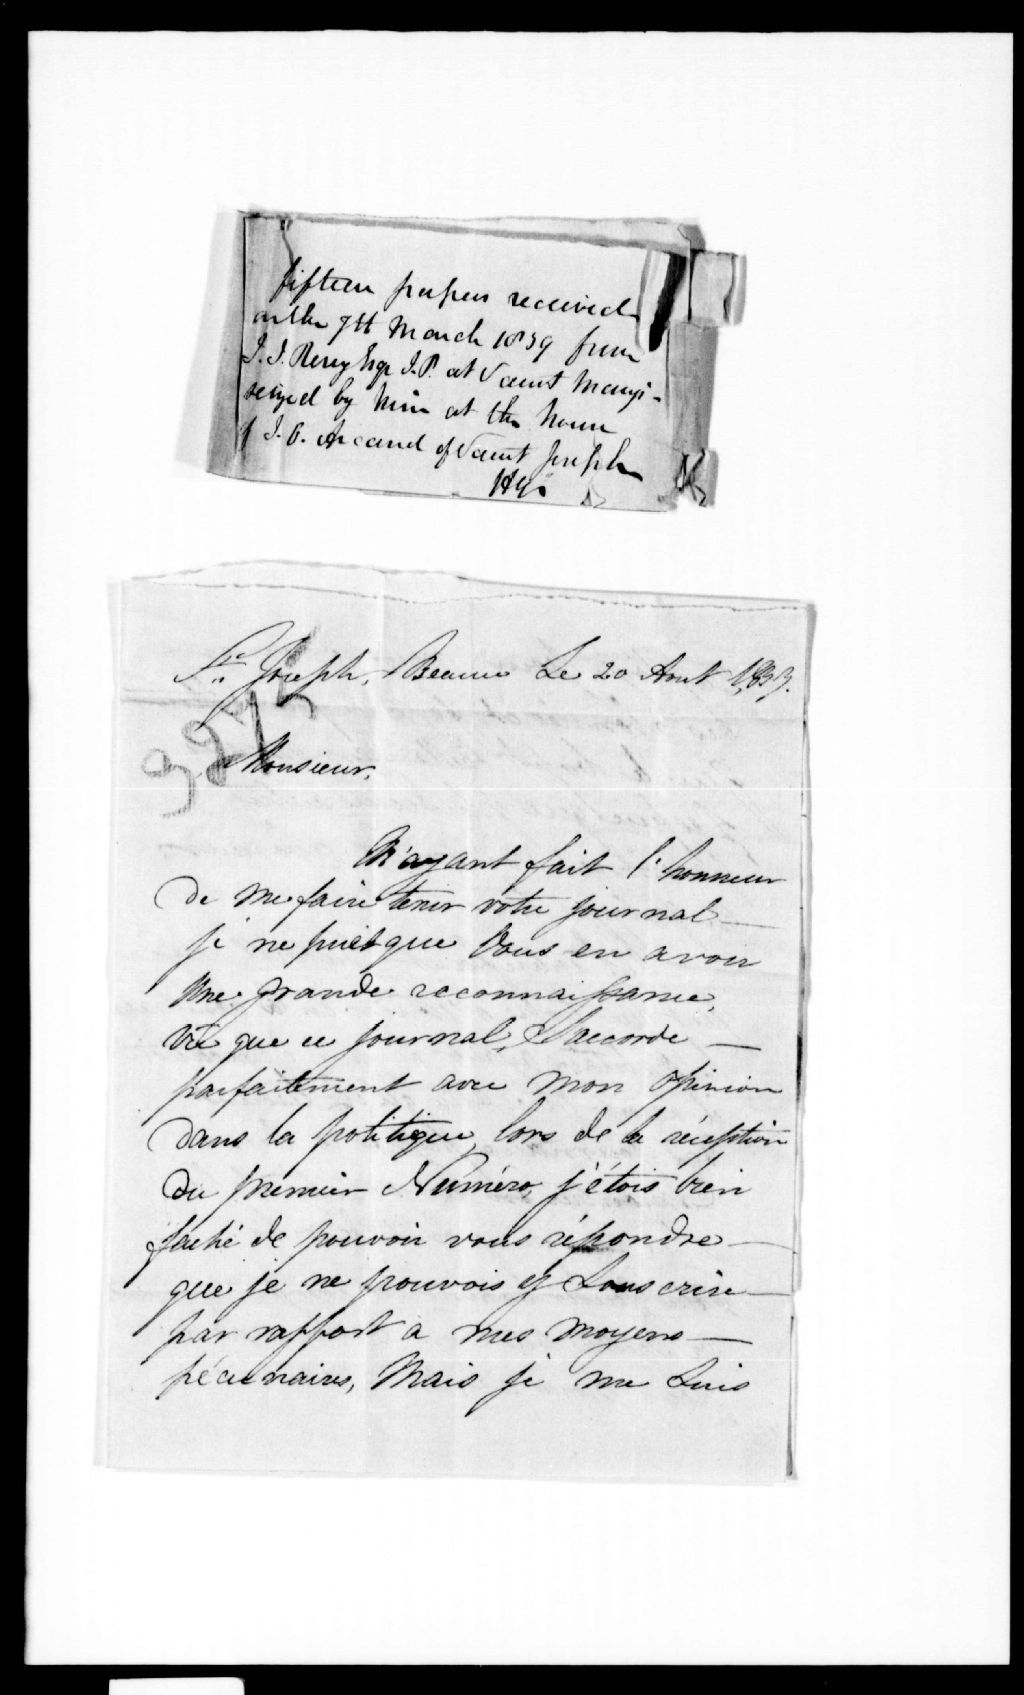 fifteen papers received
on the 7th March 1839 from
J. J. Reny Esqr J.P. at Saint Marys
seized by him at the house
of J. O. Arcand of Saint Joseph
St. Joseph, Beauce Le 20 Aout 1833.
3275
Monsieur,
M'ayant fait l'honneur
de me faire tenir votre journal
je ne puis que Vous en avoir
Une grande reconnaissance,
vû que ce journal, S'accorde
parfaitement avec mon opinion
Dans la politique, lors de la réception
Du premier Numéro, j'étois bien
faché de pouvoir vous répondre
que je ne pouvois y Souscrire
par rapport a mes moyens
pécunaires, Mais je me Suis